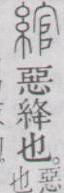 綰惡絳也。惡
也